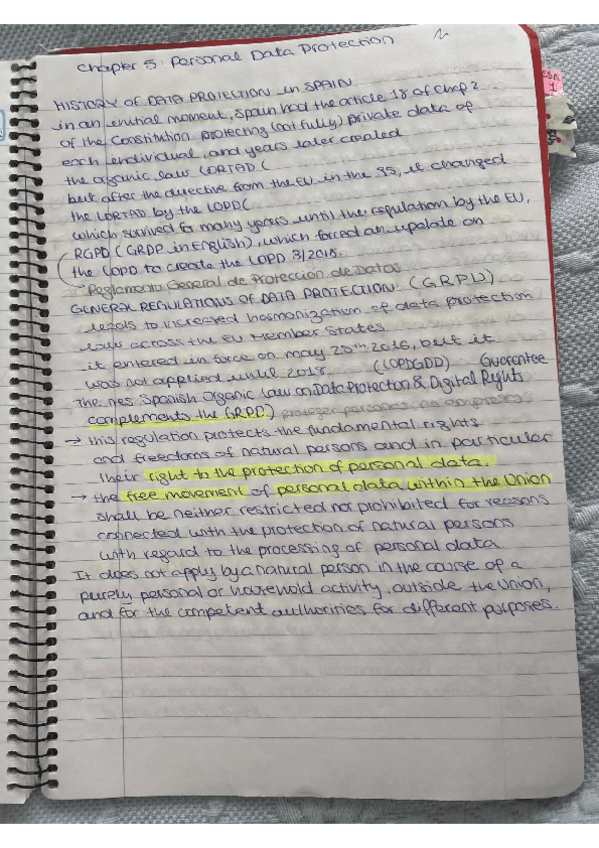 Chapter 5: Personal Data Protection
HISTORY OF DATA PROTECTION in SPAIN
in an initial moment, Spain had the article 18 of Chap 2
of the Constitution protecting (not fully) private data of
each individual, and years later created
the organic law LORTAD (
but after the directive from the EU in the 95, it changed
the LORTAD by the LOPD(
which survived for many years until the regulation by the EU,
RGPD (GRDP in English), which forced an update on
the LOPD to create the LOPD 3/2018.
Reglamento General de Protección de Datos
GENERAL REGULATIONS OF DATA PROTECTION (GRPD)
leads to increased harmonization of data protection
law across the EU Member States
it entered in force on may 25th 2016, but it
was not applied until 2018. (LOPDGDD) Guarantee
The nes Spanish Organic Law on Data Protection & Digital Rights
complements the GRPD) proteger personas no empresas
→ this regulation protects the fundamental rights
and freedoms of natural persons and in particular
their right to the protection of personal data.
→ the free movement of personal data within the Union
shall be neither restricted nor prohibited for reasons
connected with the protection of natural persons
with regard to the processing of personal data
It does not apply by a natural person in the course of a
purely personal or household activity, outside the Union,
and for the competent authorities for different purposes.